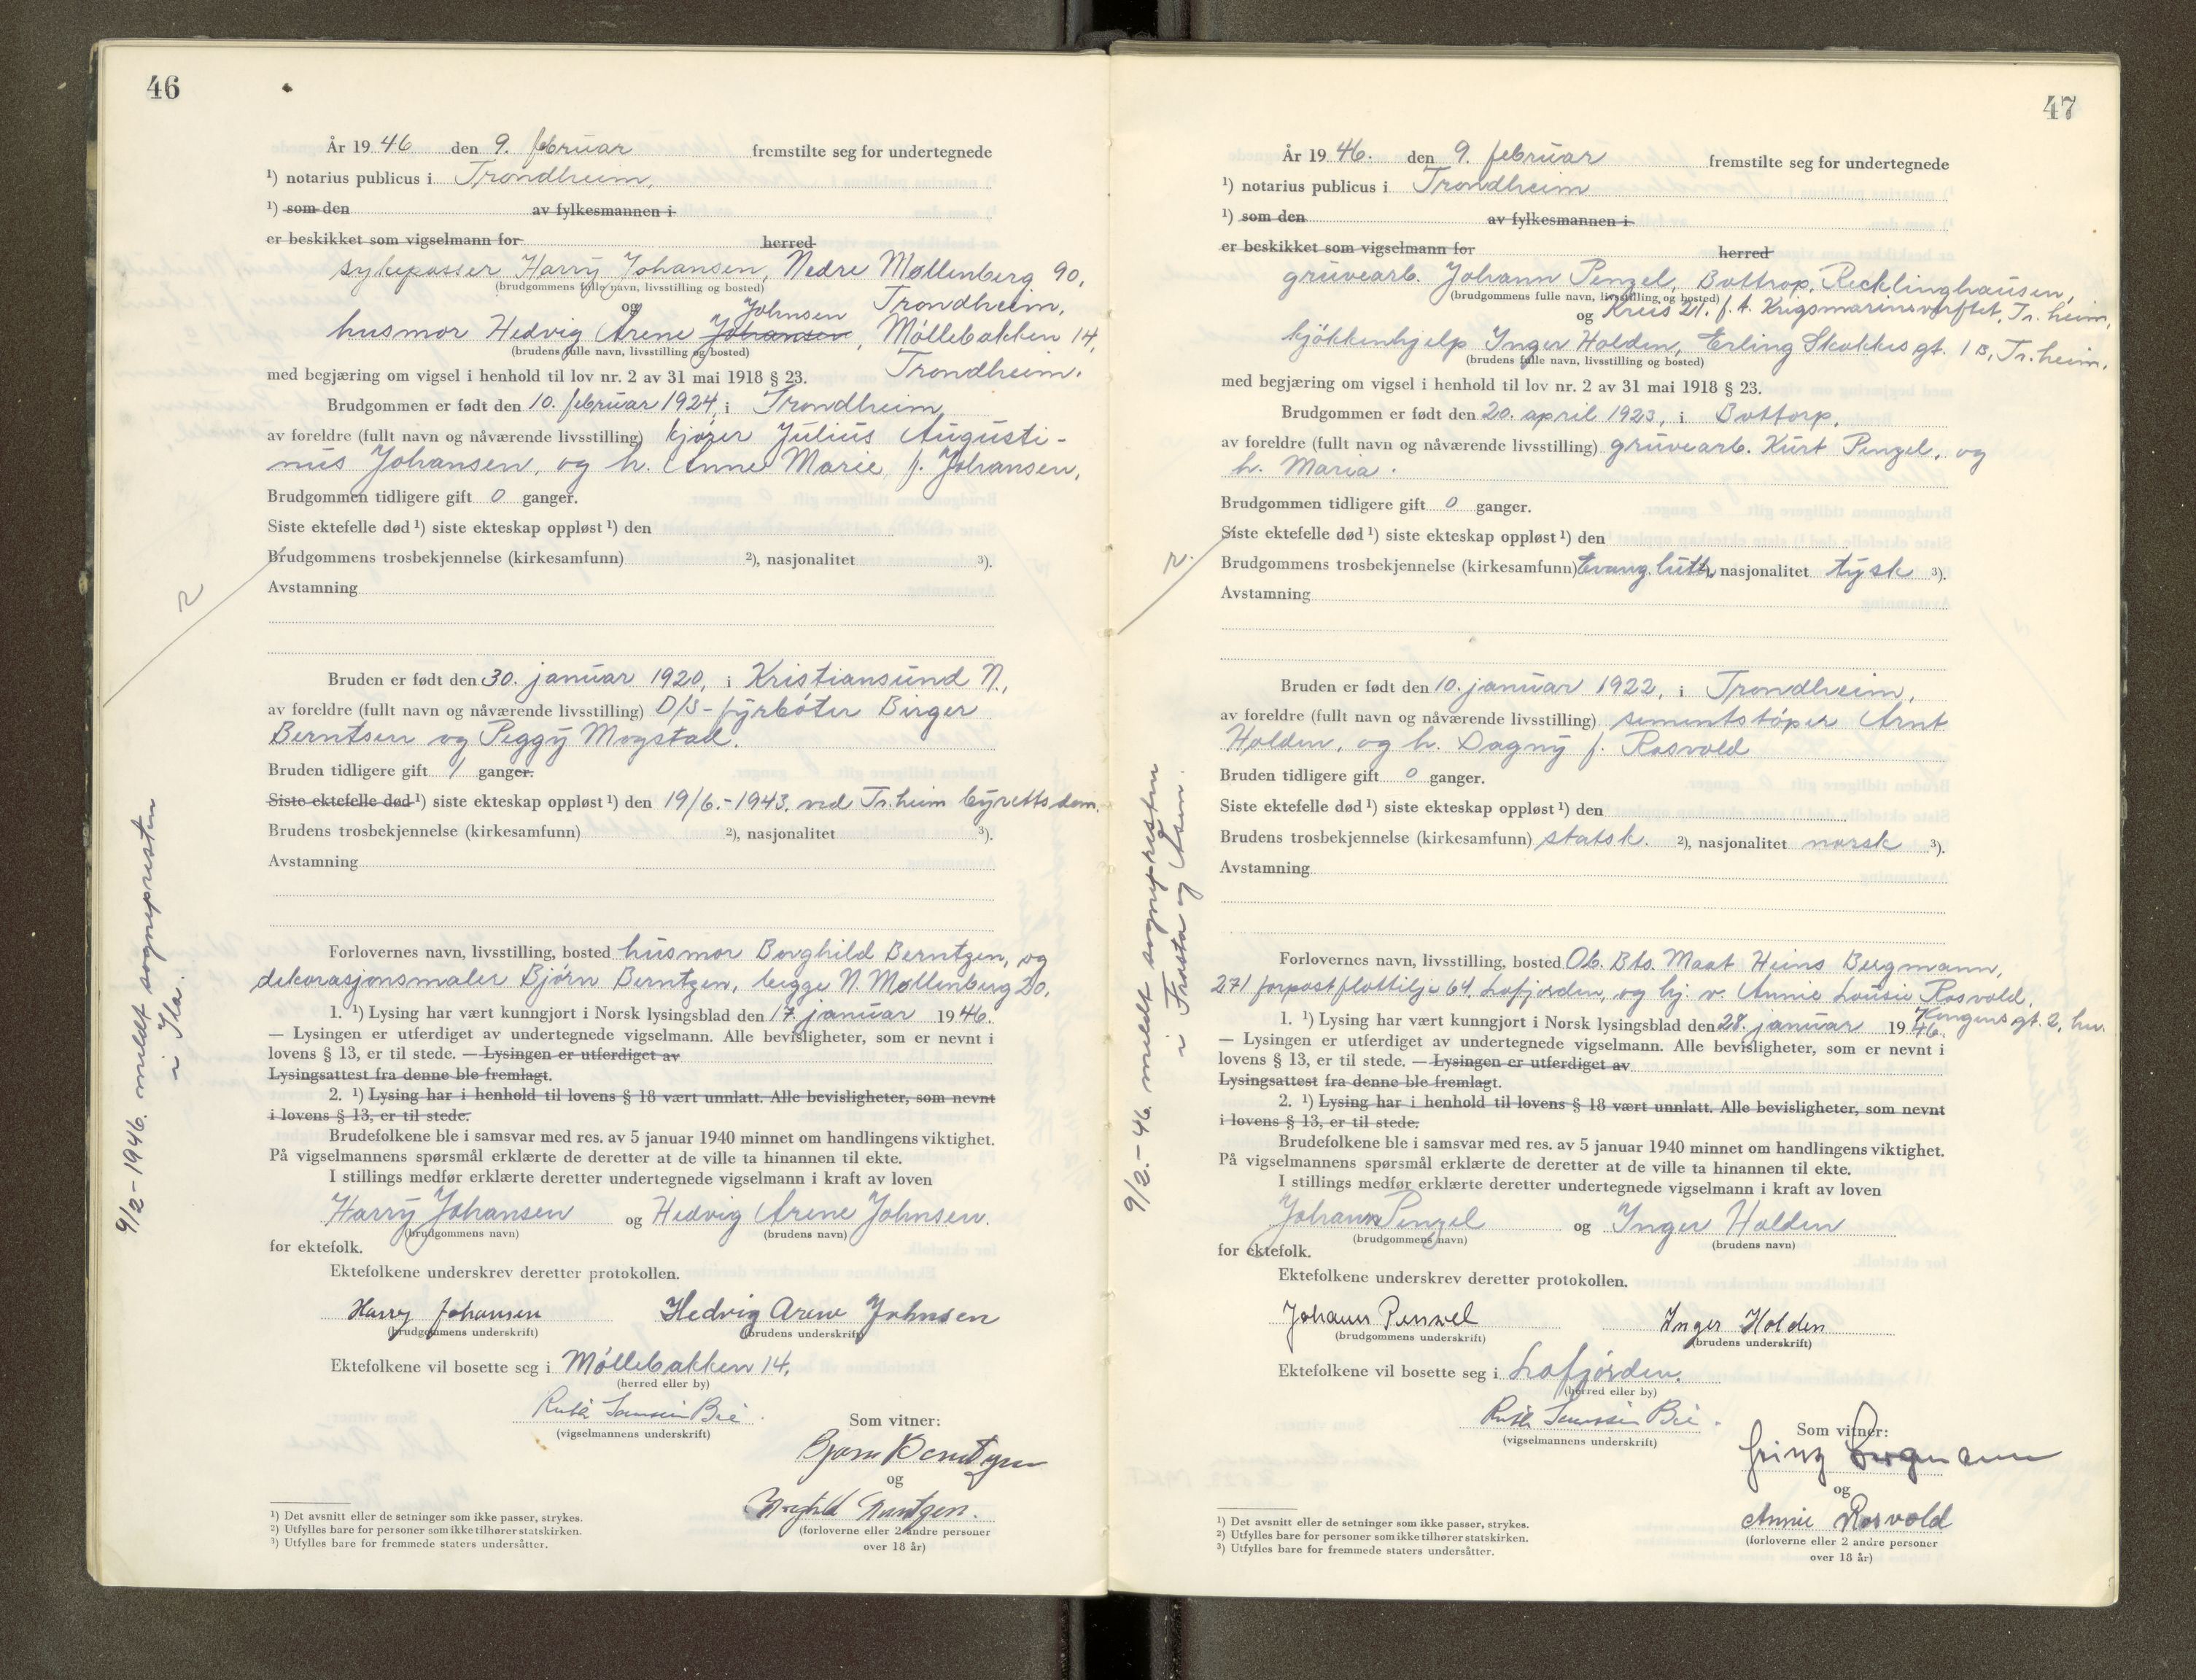 46
År 1946 den 9. februar fremstilte seg for undertegnede
¹) notarius publicus i Trondheim,
¹) som den av fylkesmannen i
er beskikket som vigselmann for herred
sykepasser Harry Johansen, Nedre Møllenberg 90,
(brudgommens fulle navn, livsstilling og bosted)
og Johnsen Trondheim,
husmor Hedvig Arene Johansen, Møllebakken 14,
(brudens fulle navn, livsstilling og bosted)
med begjæring om vigsel i henhold til lov nr. 2 av 31 mai 1918 § 23. Trondheim.
Brudgommen er født den 10. februar 1924, i Trondheim,
av foreldre (fullt navn og nåværende livsstilling) kjører Julius Augusti-
nus Johansen, og h. Anne Marie, f. Johansen,
Brudgommen tidligere gift 0 ganger.
Siste ektefelle død ¹) siste ekteskap oppløst ¹) den
Brudgommens trosbekjennelse (kirkesamfunn) ²), nasjonalitet ³).
Avstamning
Bruden er født den 30. januar 1920, i Kristiansund N.,
av foreldre (fullt navn og nåværende livsstilling) D/S-fyrbøter Birger
Berntsen og Peggy Mogstad.
Bruden tidligere gift 1 ganger.
Siste ektefelle død ¹) siste ekteskap oppløst ¹) den 19/6.-1943. ved Tr.heim byrettsdom.
Brudens trosbekjennelse (kirkesamfunn) ²), nasjonalitet ³).
Avstamning
Forlovernes navn, livsstilling, bosted husmor Borghild Berntzen, og
dekorasjonsmaler Bjørn Berntzen, begge N. Møllenberg 20.
1. ¹) Lysing har vært kunngjort i Norsk lysingsblad den 17. januar 1946.
— Lysingen er utferdiget av undertegnede vigselmann. Alle bevisligheter, som er nevnt i
lovens § 13, er til stede. — Lysingen er utferdiget av
Lysingsattest fra denne ble fremlagt.
2. ¹) Lysing har i henhold til lovens § 18 vært unnlatt. Alle bevisligheter, som nevnt
i lovens § 13, er til stede.
Brudefolkene ble i samsvar med res. av 5 januar 1940 minnet om handlingens viktighet.
På vigselmannens spørsmål erklærte de deretter at de ville ta hinannen til ekte.
I stillings medfør erklærte deretter undertegnede vigselmann i kraft av loven
Harry Johansen og Hedvig Arene Johnsen.
(brudgommens navn) (brudens navn)
for ektefolk.
Ektefolkene underskrev deretter protokollen.
Harry Johansen Hedvig Arene Johnsen
(brudgommens underskrift) (brudens underskrift)
Ektefolkene vil bosette seg i Møllebakken 14,
(herred eller by)
(vigselmannens underskrift)
Som vitner:
Bjørn Berntzen
og
Borghild Berntzen.
(forloverne eller 2 andre personer
over 18 år)
¹) Det avsnitt eller de setninger som ikke passer, strykes.
²) Utfylles bare for personer som ikke tilhører statskirken.
³) Utfylles bare for fremmede staters undersåtter.
9/2-1946. meldt sognepresten
i Ila.
2
47
År 1946. den 9. februar fremstilte seg for undertegnede
¹) notarius publicus i Trondheim
¹) som den av fylkesmannen i
er beskikket som vigselmann for herred
gruvearb. Johann Penzel, Bottrop, Recklinghausen,
(brudgommens fulle navn, livsstilling og bosted)
og Kreis 21. f.t. Krigsmarinsverftet, Tr.heim,
kjøkkenhjelp Inger Holden, Erling Skakkes gt. 1 B, Tr.heim.
(brudens fulle navn, livsstilling og bosted)
med begjæring om vigsel i henhold til lov nr. 2 av 31 mai 1918 § 23.
Brudgommen er født den 20. april 1923, i Bottorp,
av foreldre (fullt navn og nåværende livsstilling) gruvearb. Kurt Penzel, og
h. Maria.
Brudgommen tidligere gift 0 ganger.
Siste ektefelle død ¹) siste ekteskap oppløst ¹) den
Brudgommens trosbekjennelse (kirkesamfunn) Evang. luth, nasjonalitet tysk ³).
Avstamning
Bruden er født den 10. januar 1922, i Trondheim,
av foreldre (fullt navn og nåværende livsstilling) sementstøper Arnt
Holden, og h. Dagny f. Rosvold
Bruden tidligere gift 0 ganger.
Siste ektefelle død ¹) siste ekteskap oppløst ¹) den
Brudens trosbekjennelse (kirkesamfunn) statsk. ²), nasjonalitet norsk ³).
Avstamning
Forlovernes navn, livsstilling, bosted Ob. Bts. Maat Heins Bergmann,
271 forpostflottilje 64, Lofjorden, og hj. v. Annie Lousie Rosvold,
Kongens gt. 2, hu.
1. ¹) Lysing har vært kunngjort i Norsk lysingsblad den 28. januar 1946.
— Lysingen er utferdiget av undertegnede vigselmann. Alle bevisligheter, som er nevnt i
lovens § 13, er til stede. — Lysingen er utferdiget av
Lysingsattest fra denne ble fremlagt.
2. ¹) Lysing har i henhold til lovens § 18 vært unnlatt. Alle bevisligheter, som nevnt
i lovens § 13, er til stede.
Brudefolkene ble i samsvar med res. av 5 januar 1940 minnet om handlingens viktighet.
På vigselmannens spørsmål erklærte de deretter at de ville ta hinannen til ekte.
I stillings medfør erklærte deretter undertegnede vigselmann i kraft av loven
Johann Penzel og Inger Holden
(brudgommens navn) (brudens navn)
for ektefolk.
Ektefolkene underskrev deretter protokollen.
Johann Penzel Inger Holden
(brudgommens underskrift) (brudens underskrift)
Ektefolkene vil bosette seg i Lofjorden.
(herred eller by)
(vigselmannens underskrift)
Som vitner:
Bergmann
og
Annie Rosvold
(forloverne eller 2 andre personer
over 18 år)
¹) Det avsnitt eller de setninger som ikke passer, strykes.
²) Utfylles bare for personer som ikke tilhører statskirken.
³) Utfylles bare for fremmede staters undersåtter.
9/2.-46. meldt sognepresten
i Frosta og Åsen.
2.